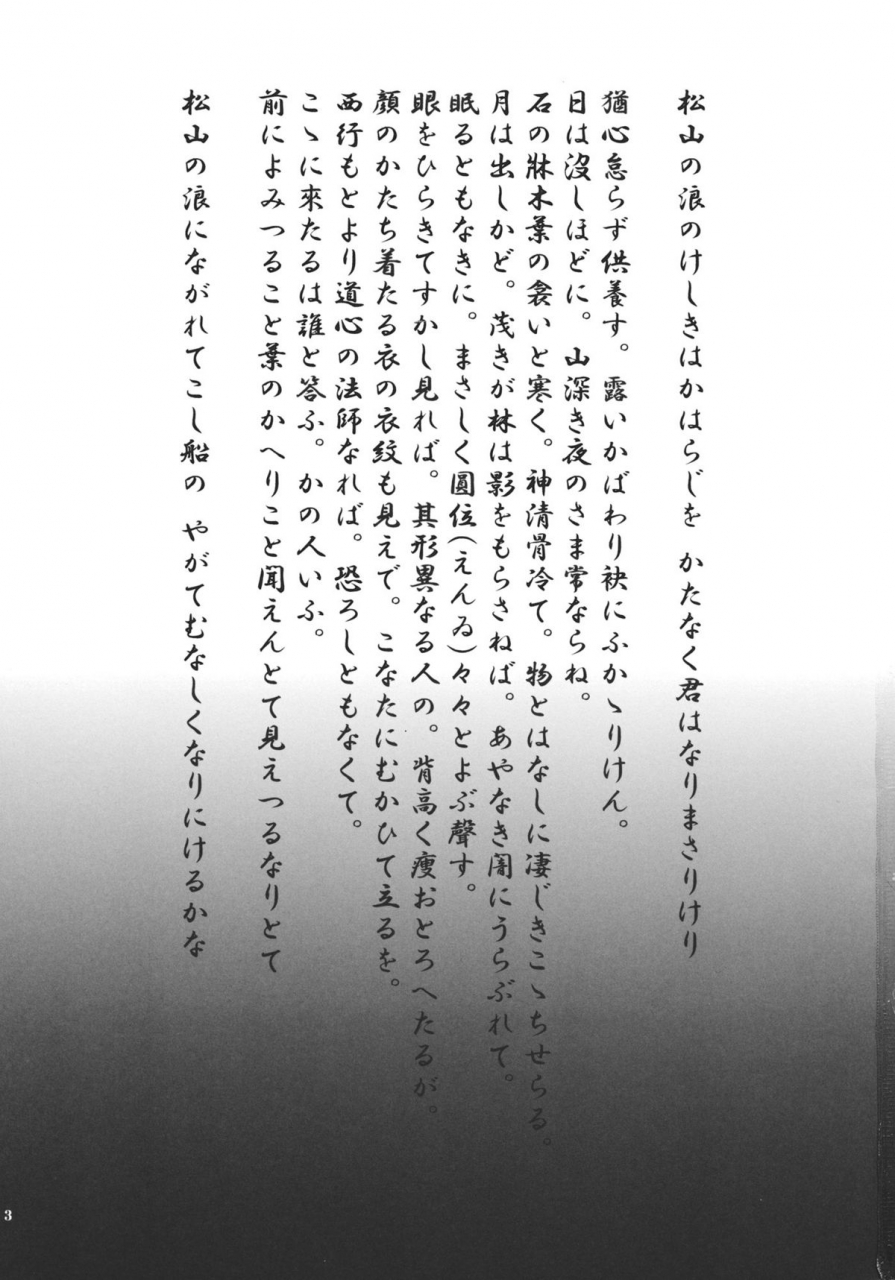 松山の浪のけしきはかはらじを かたなく君はなりまさりけり
猶心怠らず供養す。露いかばわり袂にふかゝりけん。
日は没しほどに。山深き夜のさま常ならね。
石の牀木葉の衾いと寒く。神清骨冷て。物とはなしに凄じきこゝちせらる。
月は出しかど。茂きが林は影をもらさねば。あやなき闇にうらぶれて。
眠るともなきに。まさしく圓位(えんゐ)々々とよぶ聲す。
眼をひらきてすかし見れば。其形異なる人の。背高く痩おとろへたるが。
顔のかたち着たる衣の衣紋も見えで。こなたにむかひて立るを。
西行もとより道心の法師なれば。恐ろしともなくて。
こゝに來たるは誰と答ふ。かの人いふ。
前によみつること葉のかへりこと聞えんとて見えつるなりとて
松山の浪にながれてこし船の やがてむなしくなりにけるかな
3